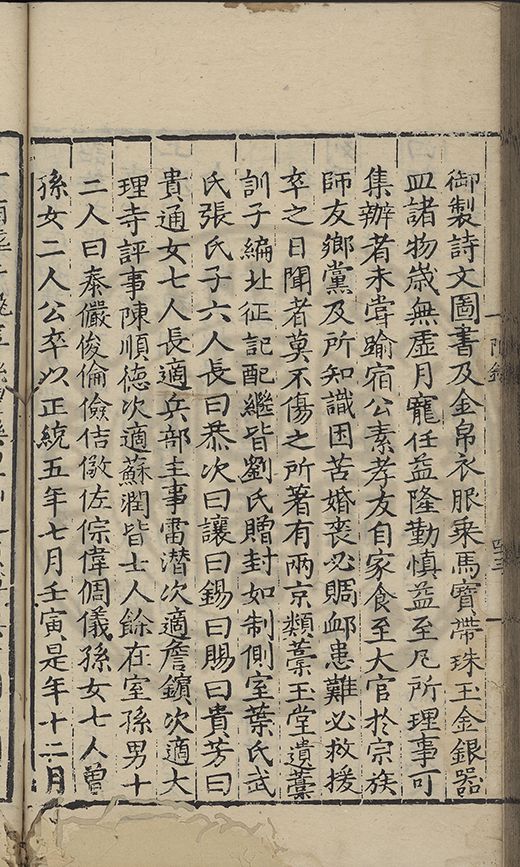 御製詩文圖書及金帛衣服乘馬寶帶珠玉金銀器
皿諸物歲無虛月寵任益隆勤慎益至凡所理事可
集辦者未嘗踰宿公素孝友自家食至大官於宗族
師友鄉黨及所知識困苦婚喪必賙卹患難必救援
卒之日聞者莫不傷之所著有兩京類藁玉堂遺藁
訓子編北征記配繼皆劉氏贈封如制側室葉氏武
氏張氏子六人長曰恭次曰讓曰錫曰賜曰貴芳曰
貴通女七人長適兵部主事雷潛次適詹鑌次適大
理寺評事陳順德次適蘇潤皆士人餘在室孫男十
二人曰泰儼俊倫儉佶儆佐倧偉倜儀孫女七人曾
孫女二人公卒以正統五年七月壬寅是年十二月
附錄